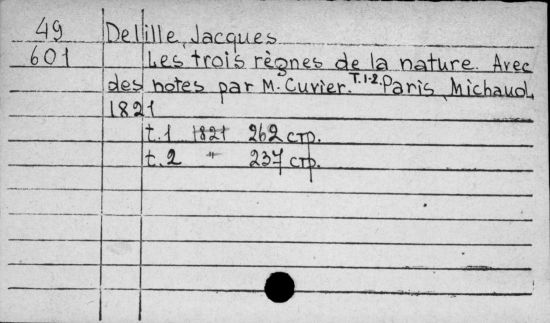 49 Delille, Jacques
601 Les trois règnes de la nature. Avec
des notes par M. Cuvier. T.1-2. Paris, Michaud,
1821
t.1 1821 262 стр.
t.2 " 237 стр.